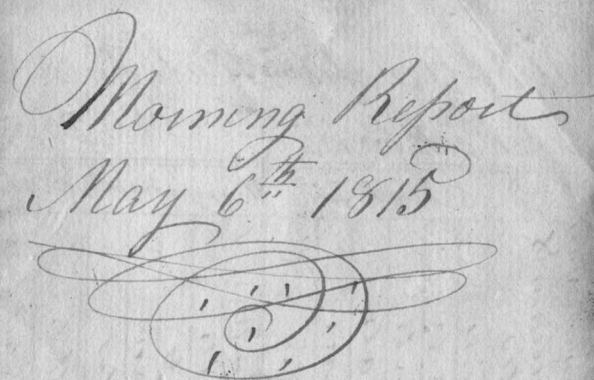 Morning Report
May 6th 1815